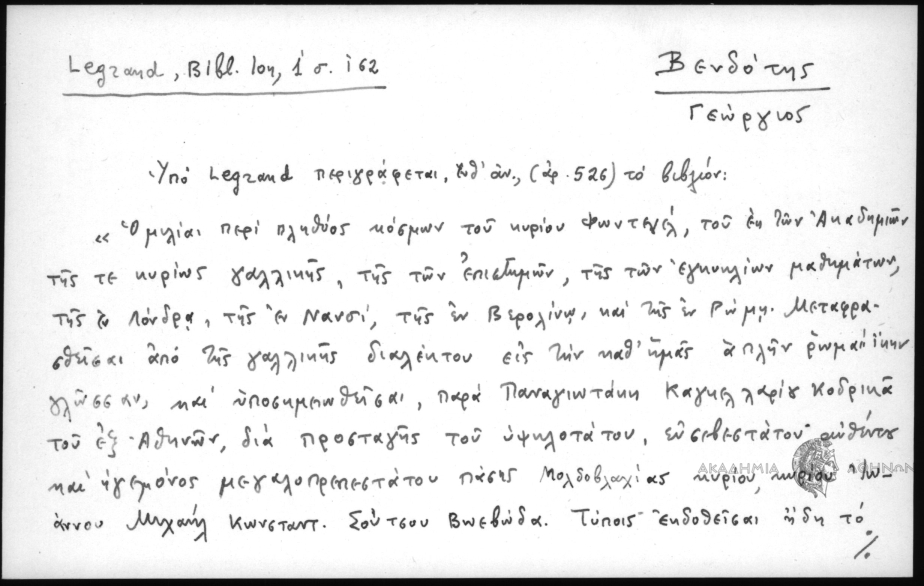 Legrand, Bibl. Ion, 1 σ. 162
Βενδότης
Γεώργιος
Ὑπό Legrand περιγράφεται, ἔνθ' ἀν., (ἀρ. 526) τό βιβλίον:
« Ὁμιλίαι περί πληθύος κόσμων τοῦ κυρίου Φωντενέλ, τοῦ ἐκ τῶν Ἀκαδημιῶν
τῆς τε κυρίως γαλλικῆς, τῆς τῶν ἐπιστημῶν, τῆς τῶν ἐγκυκλίων μαθημάτων,
τῆς ἐν Λόνδρᾳ, τῆς ἐν Νανσί, τῆς ἐν Βερολίνῳ, καί τῆς ἐν Ρώμῃ. Μεταφρα-
σθεῖσαι ἀπό τῆς γαλλικῆς διαλέκτου εἰς τήν καθ' ἡμᾶς ἁπλῆν ῥωμαίϊκην
γλῶσσαν, καί ὑποσημειωθεῖσαι, παρά Παναγιωτάκη Καγκελλαρίου Κοδρικᾶ
τοῦ ἐξ Ἀθηνῶν, διά προσταγῆς τοῦ ὑψηλοτάτου, εὐσεβεστάτου αὐθέντου
καί ἡγεμόνος μεγαλοπρεπεστάτου πάσης Μολδοβλαχίας κυρίου, κυρίου Ἰω-
άννου Μιχαήλ Κωνσταντ. Σούτσου Βοεβόδα. Τύποις ἐκδοθεῖσαι ἤδη τό
./.
ΑΚΑΔΗΜΙΑ ΑΘΗΝΩΝ